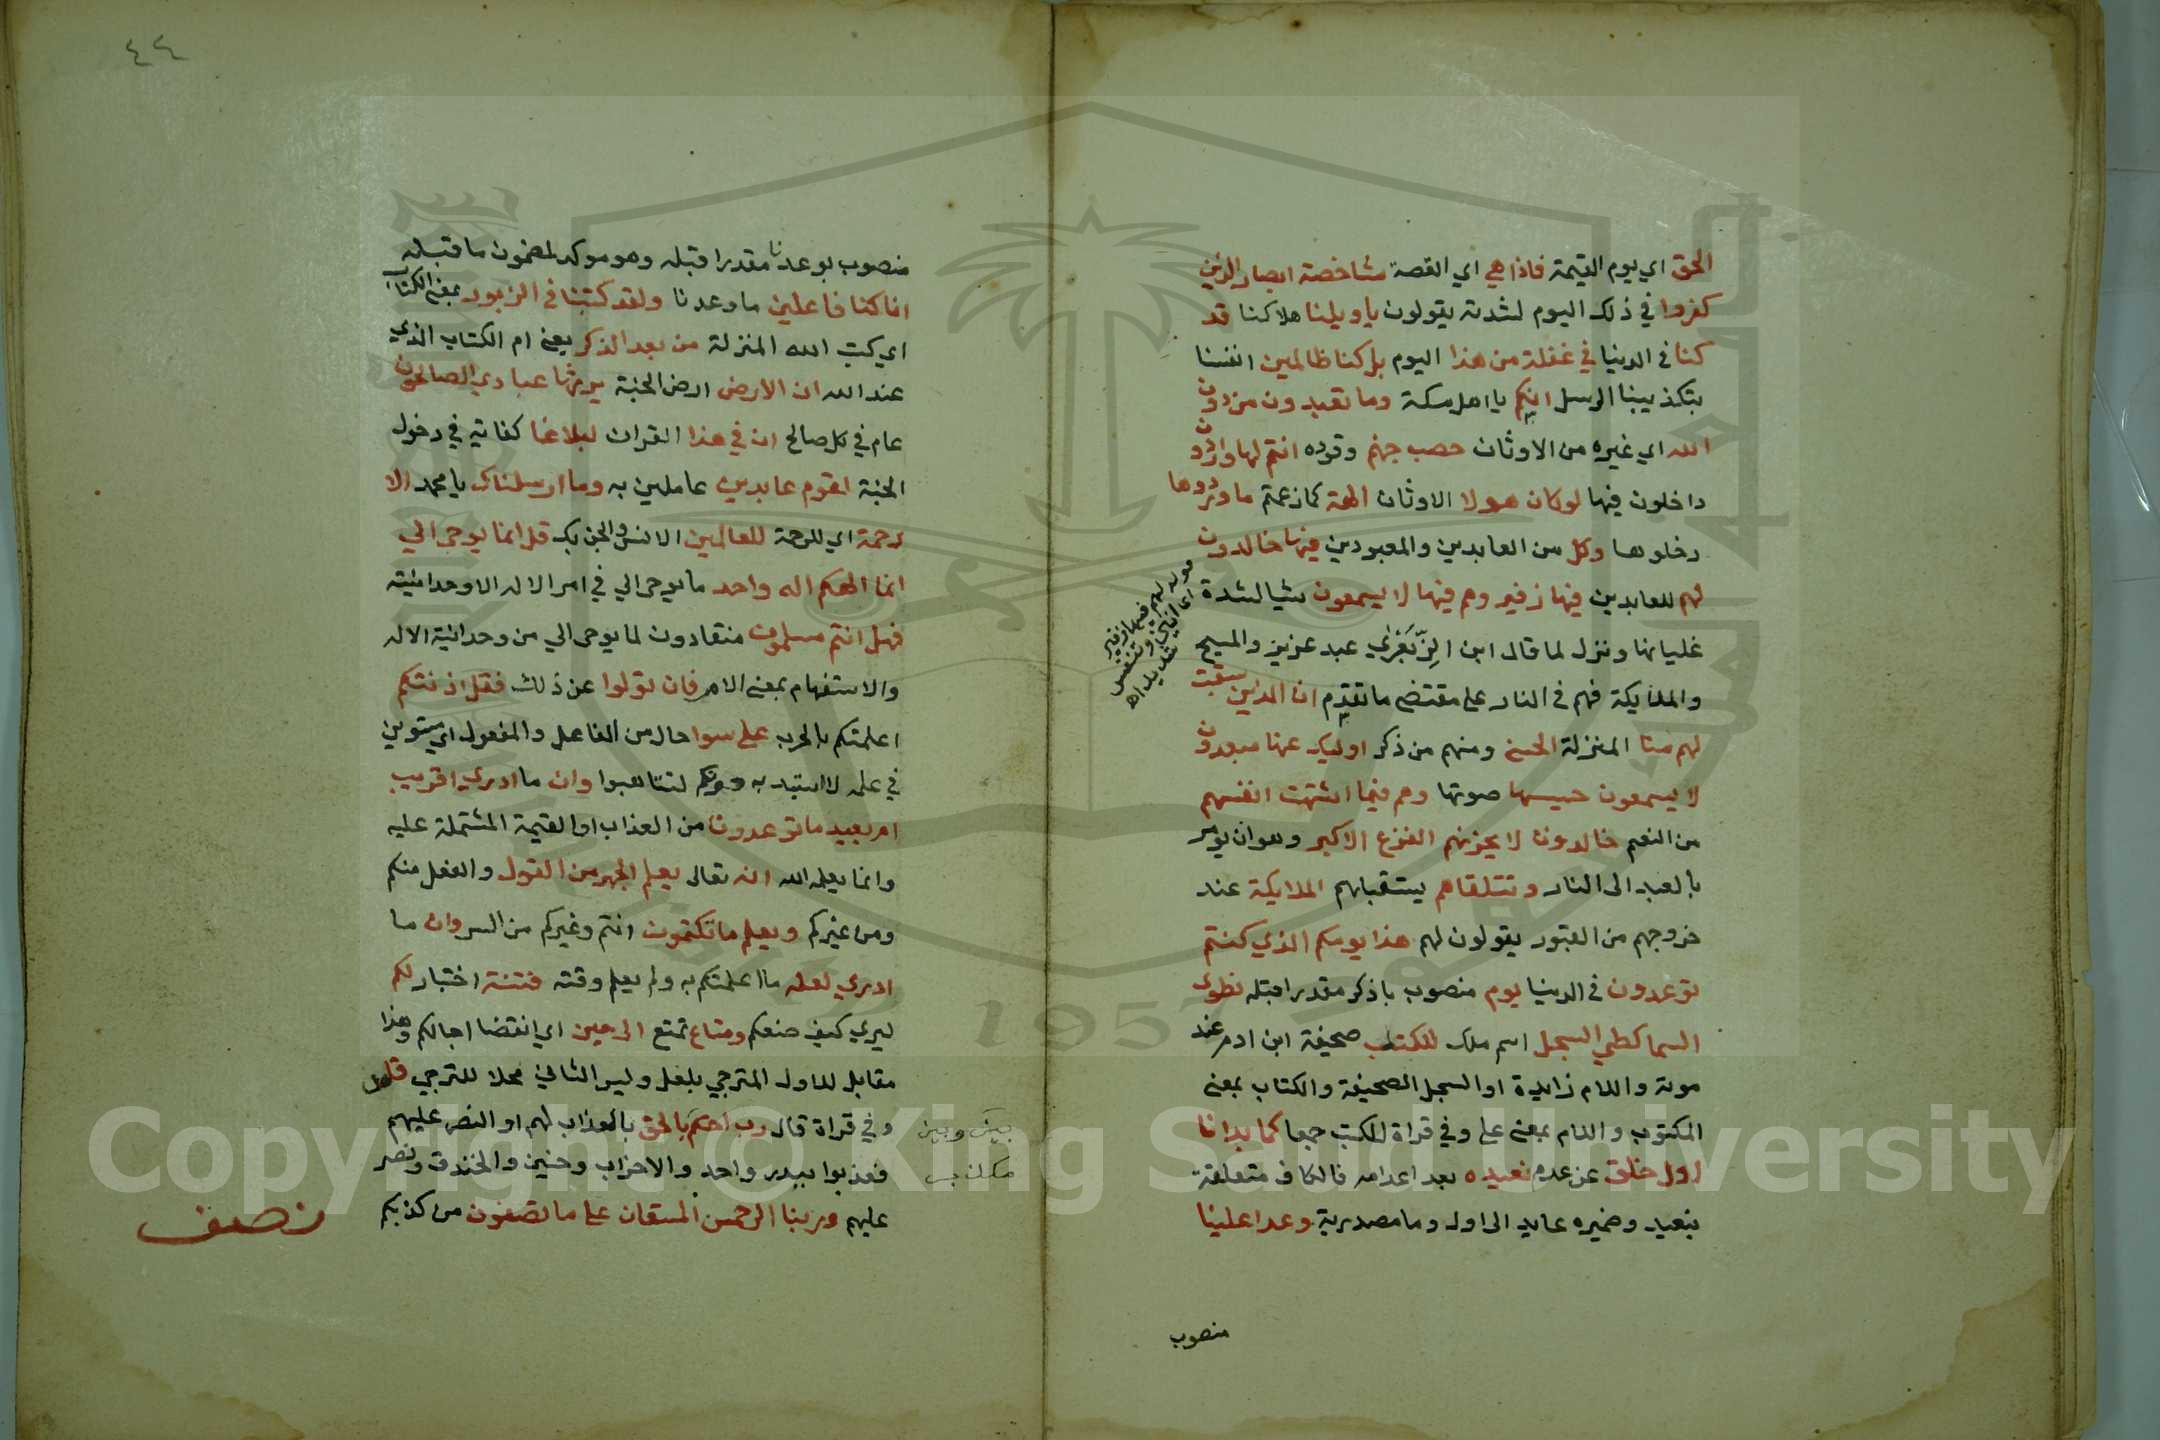 الحق اي يوم القيمة فاذا هي اي القصة شاخصة ابصار الذين
كفروا في ذلك اليوم لشدته يقولون يا ويلنا هلاكنا قد
كنا في الدنيا في غفلة من هذا اليوم بل كنا ظالمين انفسنا
بتكذيبنا الرسل انكم يا اهل مكة وما تعبدون من دون
الله اي غيره من الاوثان حصب جهنم وقوده انتم لها واردون
داخلون فيها لو كان هولا الاوثان الهة كما زعمتم ما وردوها
دخلوها وكل من العابدين والمعبودين فيها خالدون
لهم للعابدين فيها زفير وهم فيها لا يسمعون شيا لشدة
غليانها ونزل لما قال ابن الزِّبَعْرٰي عبد عزيز والمسيح
والملايكة فهم في النار على مقتضى ما تقدم ان الذين سبقت
لهم منا المنزلة الحسنى ومنهم من ذكر اوليك عنها مبعدون
لا يسمعون حسيسها صوتها وهم فيما اشتهت انفسهم
من النعيم خالدون لا يحزنهم الفزع الاكبر وهو ان يومر
بالعبد الى النار وتتلقاهم يستقبلهم الملايكة عند
خروجهم من القبور يقولون لهم هذا يومكم الذي كنتم
توعدون في الدنيا يوم منصوب باذكر مقدرا قبله نطوى
السما كطي السجل اسم ملك للكتاب صحيفة ابن ادم عند
موته واللام زايدة او السجل الصحيفة والكتاب بمعنى
المكتوب واللام بمعنى على وفي قراة للكتب جمعا كما بدانا
اول خلق عن عدم نعيده بعد اعدامه فالكاف متعلقة
بنعيد وضميره عايد الى اول وما مصدرية وعدا علينا
منصوب
قوله لهم فيها زفير
اي انين وتنفس
شديد اه
٤٤
منصوب بوعدنا مقدرا قبله وهو موكد لمضمون ما قبله
انا كنا فاعلين ما وعدنا ولقد كتبنا في الزبور بمعنى الكتاب
اي كتب الله المنزلة من بعد الذكر يعني ام الكتاب الذي
عند الله ان الارض ارض الجنة يرثها عبادي الصالحون
عام في كل صالح ان في هذا القران لبلاغا كفاية في دخول
الجنة لقوم عابدين عاملين به وما ارسلناك يا محمد الا
رحمة اي للرحمة للعالمين الانس والجن بك قل انما يوحى الي
انما الهكم اله واحد ما يوحى الي في امر الاله الا وحدانيته
فهل انتم مسلمون منقادون لما يوحى الي من وحدانية الاله
والاستفهام بمعنى الامر فان تولوا عن ذلك فقل اذنتكم
اعلمتكم بالحرب على سوا حال من الفاعل والمفعول اي مستوين
في علمه لا استبد به دونكم لتتاهبوا وان ما ادري اقريب
ام بعيد ما توعدون من العذاب او القيمة المشتملة عليه
وانما يعلمه الله انه تعالى يعلم الجهر من القول والفعل منكم
ومن غيركم ويعلم ما تكتمون انتم وغيركم من السر وان ما
ادري لعله ما اعلمتكم به ولم يعلم وقته فتنة اختبار لكم
ليري كيف صنعكم ومتاع تمتع الى حين اي انقضا اجالكم وهذا
مقابل للاول المترجي بلعل وليس الثاني محلا للترجي قل
وفي قراة قال رب احكم بالحق بالعذاب لهم او النصر عليهم
فعذبوا ببدر واحد والاحزاب وحنين والخندق ونصر
عليهم وربنا الرحمن المستعان على ما تصفون من كذبكم
نصف
Copyright © King Saud University
1957